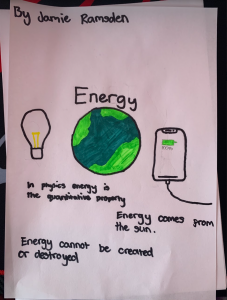 By Jamie Ramsden
Energy
In physics energy is
the quantitative property
Energy comes from
the sun.
Energy cannot be created
or destroyed